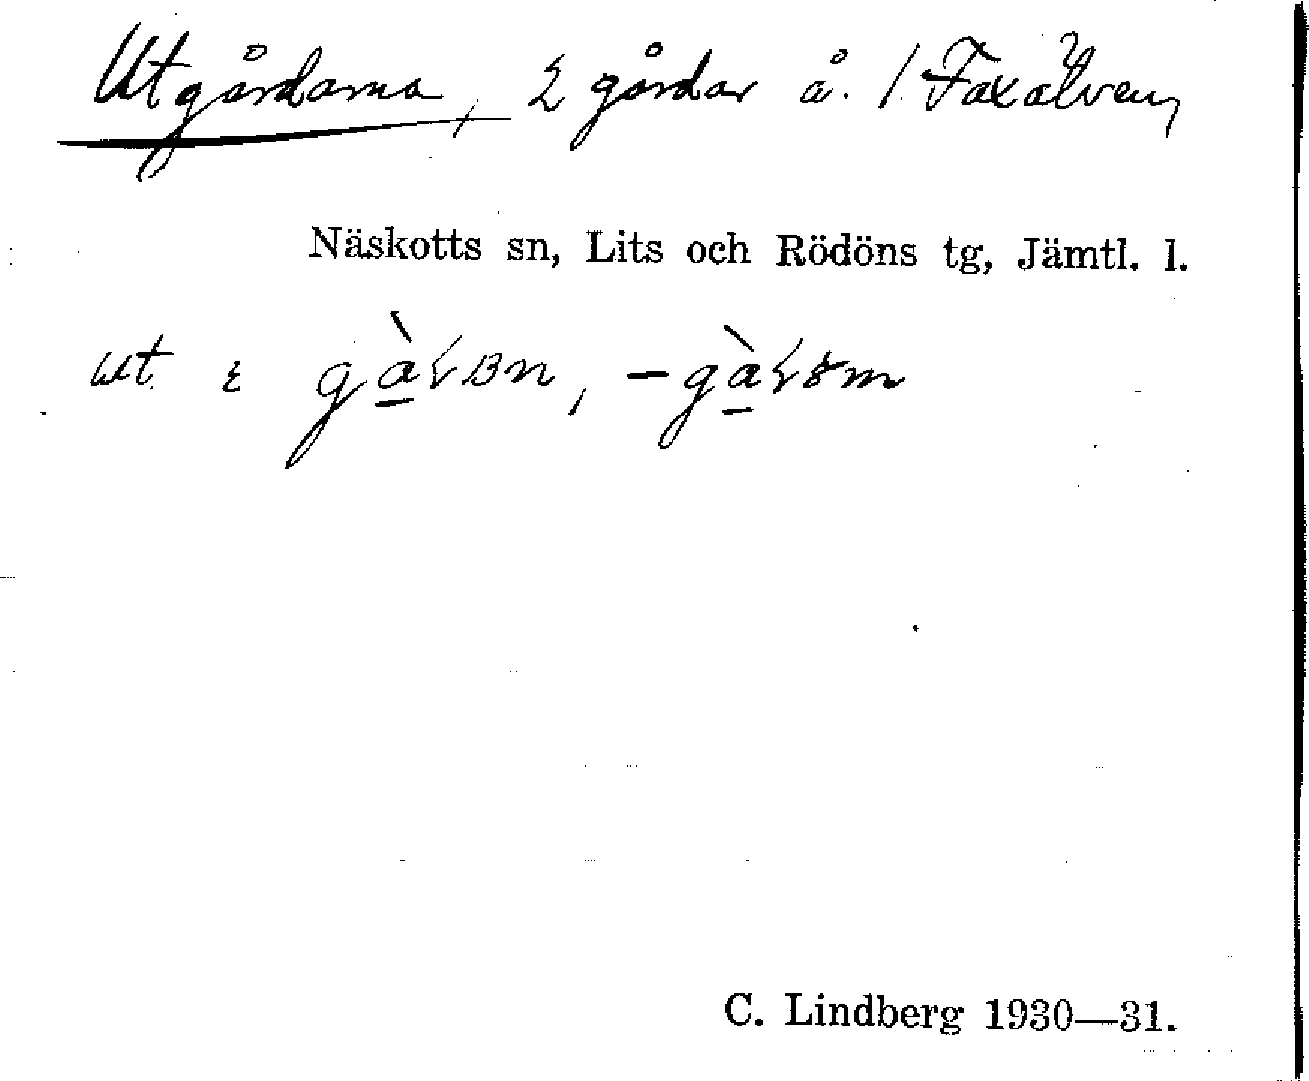 Utgårdarna, 2 gårdar å. 1. Faxälven,
Näskotts sn, Lits och Rödöns tg, Jämtl. l.
ut
C. Lindberg 1930—31.